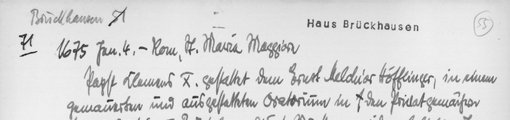 Brückhausen 71
Haus Brückhausen
55
71 1675 Jan. 4. - Rom, St. Maria Maggiore
Papst Klemens X. gestattet dem Ernst Melchior Höfflinger, in einem
gemauerten und ausgestatteten Oratorium in den Privatgemächern